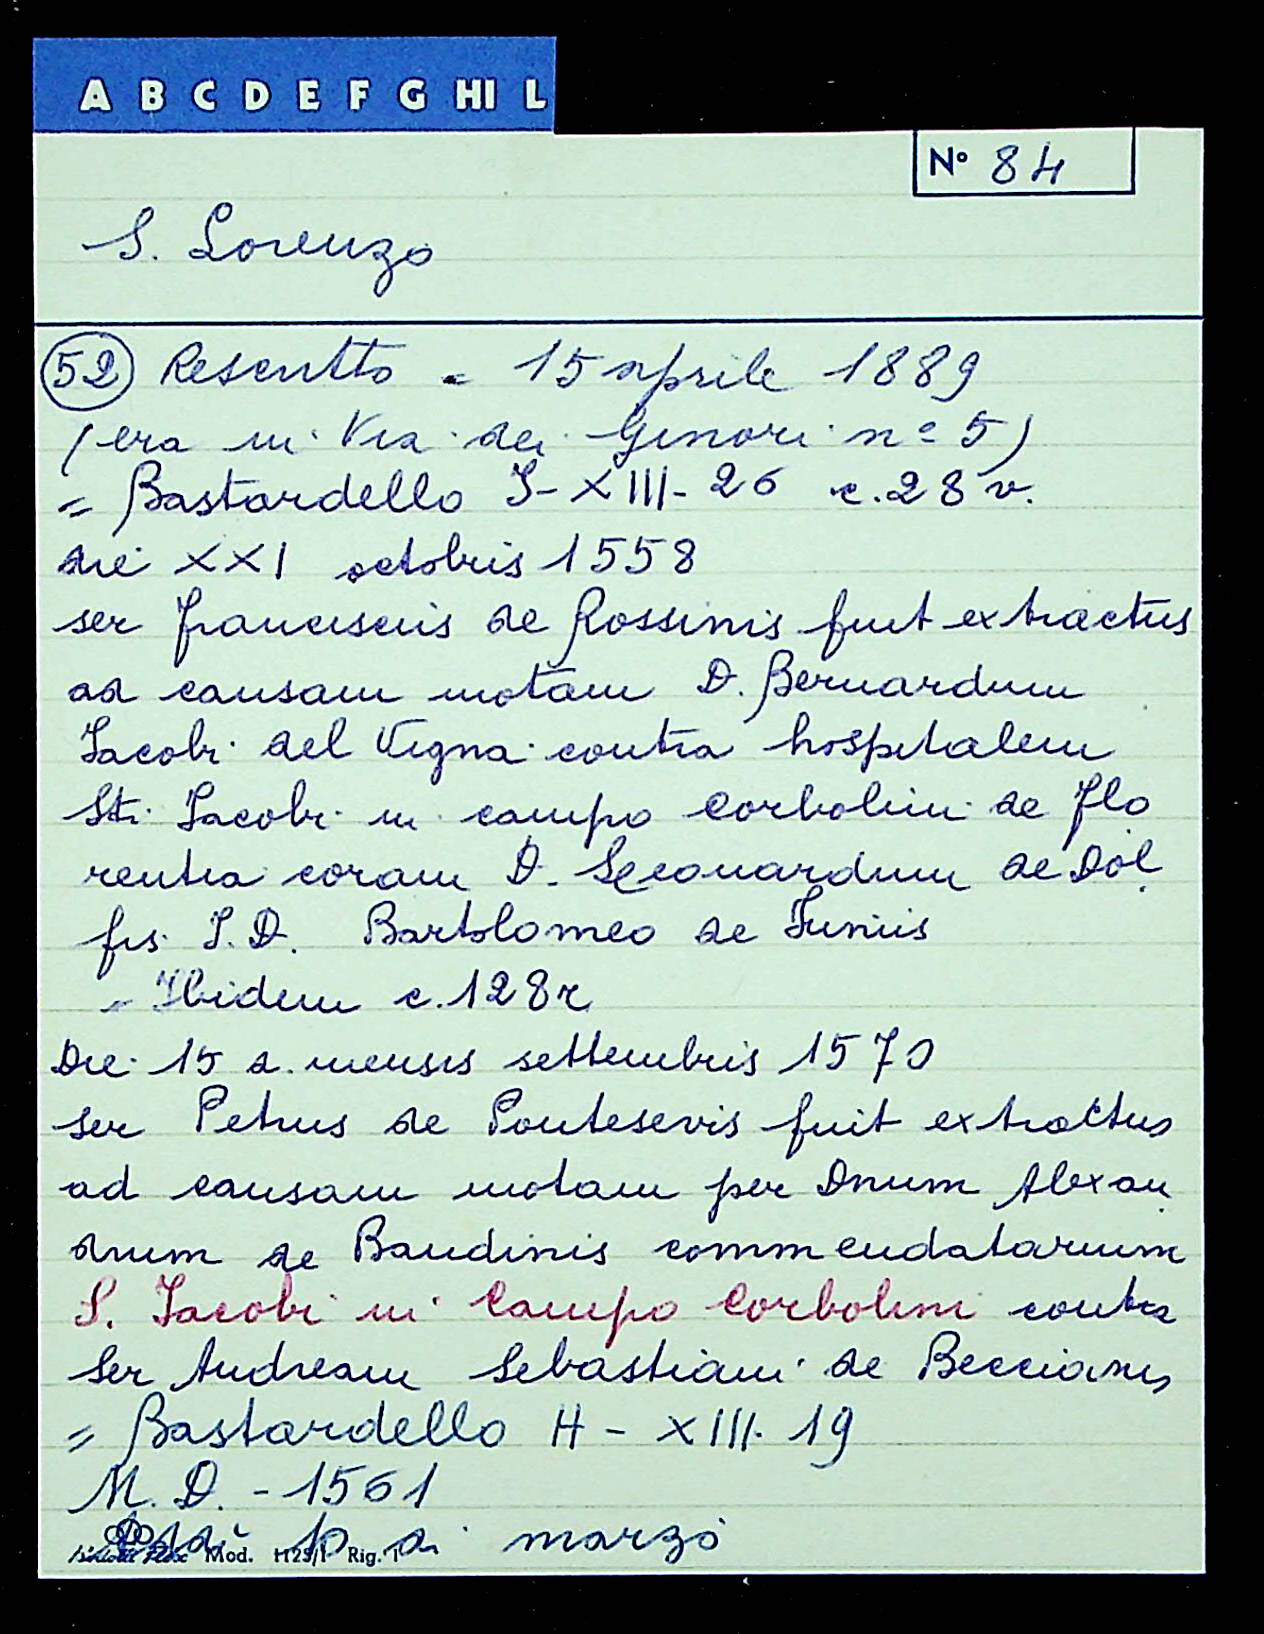 A B C D E F G HI L
N° 84
S. Lorenzo
52 Rescritto = 15 aprile 1889
(era in Via dei Ginori n° 5)
= Bastardello I-XIII-26 c.28 v.
die XXI octobris 1558
ser Franciscus de Rossinis fuit extractus
ad causam motam D. Bernardum
Iacobi del Vigna contra hospitalem
Sti Iacobi in campo Corbolini de Flo
rentia coram D. Leonardum de Dol
fis I.D. Bartolomeo de Iunius
= Ibidem c.128r
Die 15 d. mensis settembris 1570
ser Petrus de Pontesevis fuit extractus
ad causam motam per Dnum Alexan
drum de Bandinis commendatarium
S. Iacobi in Campo Corbolini contra
Ser Andream Sebastiani de Beccianis
= Bastardello H - XIII. 19
M. D. - 1561
marzo
Mod. Rig. 1